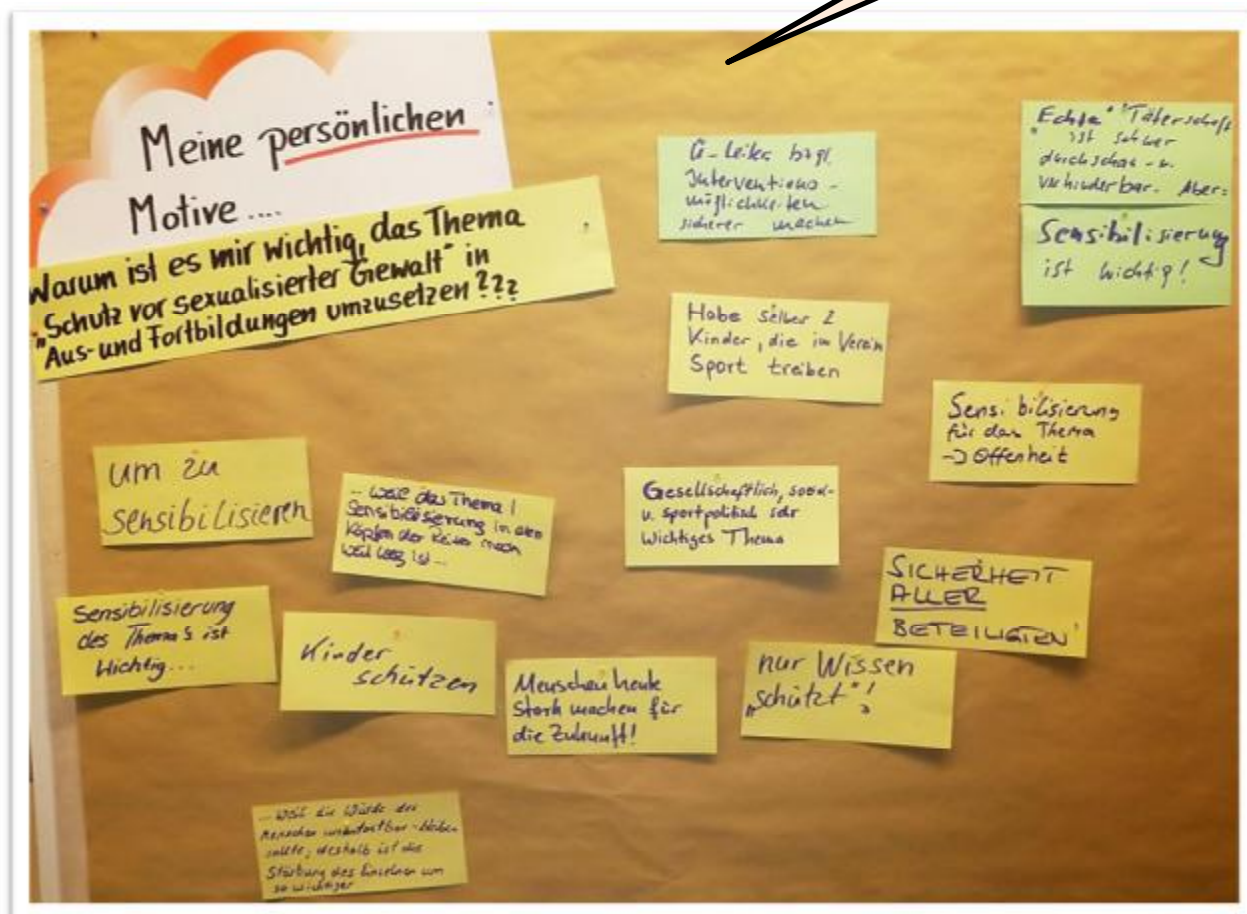 Meine persönlichen
Motive ....
Warum ist es mir wichtig, das Thema
„Schutz vor sexualisierter Gewalt" in
Aus- und Fortbildungen umzusetzen???
Ü-Leiter bzgl.
Interventions-
möglichkeiten
sicherer machen
„Echte" Täterschaft
ist schwer
durchschau- u.
verhinderbar. Aber:
Sensibilisierung
ist wichtig!
Habe selber 2
Kinder, die im Verein
Sport treiben
Sensibilisierung
für das Thema
-> Offenheit
um zu
sensibilisieren
... weil das Thema /
Sensibilisierung in den
Köpfen der
weit weg ist ...
Gesellschaftlich, sozial-
u. sportpolitisch sehr
wichtiges Thema
SICHERHEIT
ALLER
BETEILIGTEN
Sensibilisierung
des Thema's ist
Wichtig...
Kinder
schützen
Menschen heute
stark machen für
die Zukunft!
nur Wissen
„schützt"!
... weil die Würde des
Menschen unantastbar bleiben
sollte, deshalb ist die
Stärkung des Einzelnen um
so wichtiger